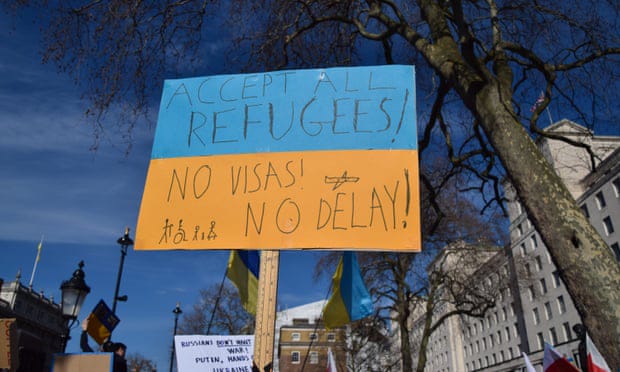 ACCEPT ALL
REFUGEES!
NO VISAS!
NO DELAY!
RUSSIANS DON'T WANT
WAR!
PUTIN, HANDS
UKRAINE